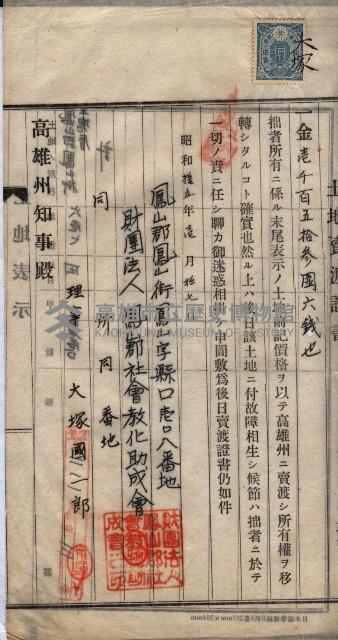 大塚
土地賣渡證書
一金壱千百五拾参圓六錢也
拙者所有ニ係ル末尾表示ノ土地前記價格ヲ以テ高雄州ニ賣渡シ所有權ヲ移
轉シタルコト確實也然ル上ハ後日該土地ニ付故障相生シ候節ハ拙者ニ於テ
一切ノ責ニ任シ聊カ御迷惑相掛ケ申間敷爲後日賣渡證書仍如件
昭和拾五年壱月拾七
鳳山郡鳳山街鳳山字縣口壱〇八番地
財團法人鳳山郡社會教化助成會
同所同番地
理事
大塚國二郎
高雄州知事殿
土地表示
財團法人
鳳山郡社
會教化助
成會之印
高雄市立歷史博物館
KAOHSIUNG MUSEUM OF HISTORY